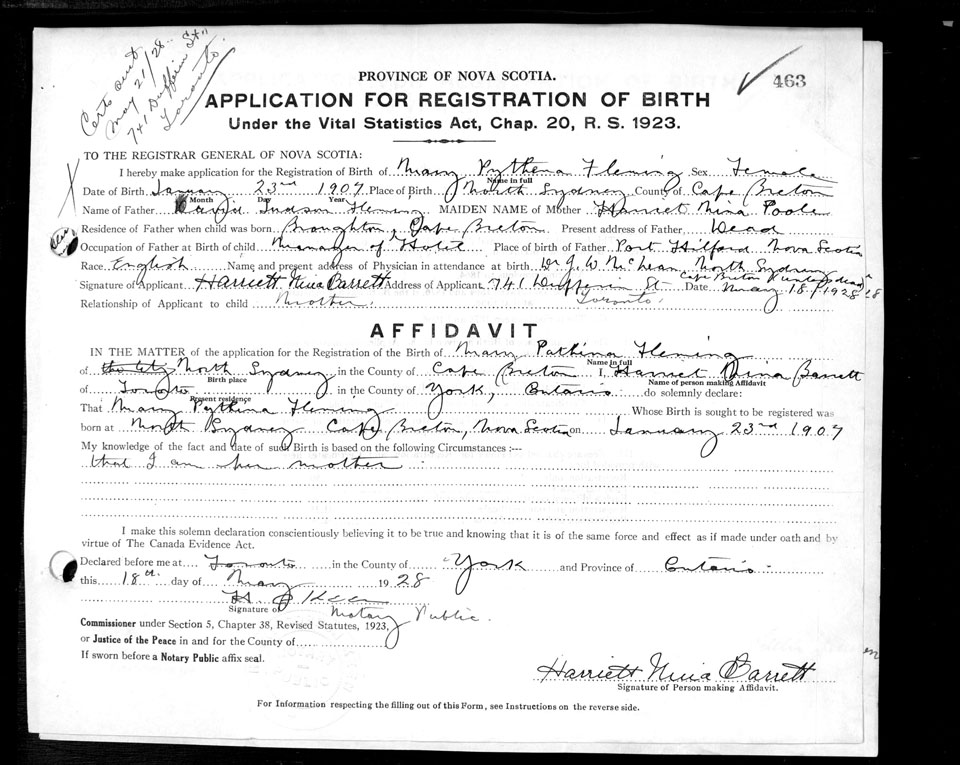 Certs out
May 21/28
741 Dufferin St"
Toronto.
463
PROVINCE OF NOVA SCOTIA.
APPLICATION FOR REGISTRATION OF BIRTH
Under the Vital Statistics Act, Chap. 20, R. S. 1923.
TO THE REGISTRAR GENERAL OF NOVA SCOTIA:
I hereby make application for the Registration of Birth of Mary Pythena Fleming Sex Female
Name in full
Date of Birth January 23rd 1907 Place of Birth North Sydney County of Cape Breton
Month Day Year
Name of Father David Judson Fleming MAIDEN NAME of Mother Harriet Nina Poole
Residence of Father when child was born Broughton, Cape Breton Present address of Father Dead
Occupation of Father at Birth of child Manager of Hotel Place of birth of Father Port Hilford Nova Scotia
Race English Name and present address of Physician in attendance at birth Dr J. W. McLean North Sydney
Cape Breton
Signature of Applicant Harriett Nina Barrett Address of Applicant 741 Dufferin St Date May 18/1928
Relationship of Applicant to child Mother. Toronto.
AFFIDAVIT
IN THE MATTER of the application for the Registration of the Birth of Mary Pathina Fleming
Name in full
of the City North Sydney in the County of Cape Breton I, Harriet Nina Barrett
Birth place Name of person making Affidavit
of Toronto in the County of York, Ontario do solemnly declare:
Present residence
That Mary Pythina Fleming Whose Birth is sought to be registered was
born at North Sydney Cape Breton, Nova Scotia on January 23rd 1907
My knowledge of the fact and date of such Birth is based on the following Circumstances :—
that I am her mother
I make this solemn declaration conscientiously believing it to be true and knowing that it is of the same force and effect as if made under oath and by
virtue of The Canada Evidence Act.
Declared before me at Toronto in the County of York and Province of Ontario
this 18th day of May 1928
Signature of Notary Public.
Commissioner under Section 5, Chapter 38, Revised Statutes, 1923,
or Justice of the Peace in and for the County of
If sworn before a Notary Public affix seal.
Harriett Nina Barrett
Signature of Person making Affidavit.
For Information respecting the filling out of this Form, see Instructions on the reverse side.